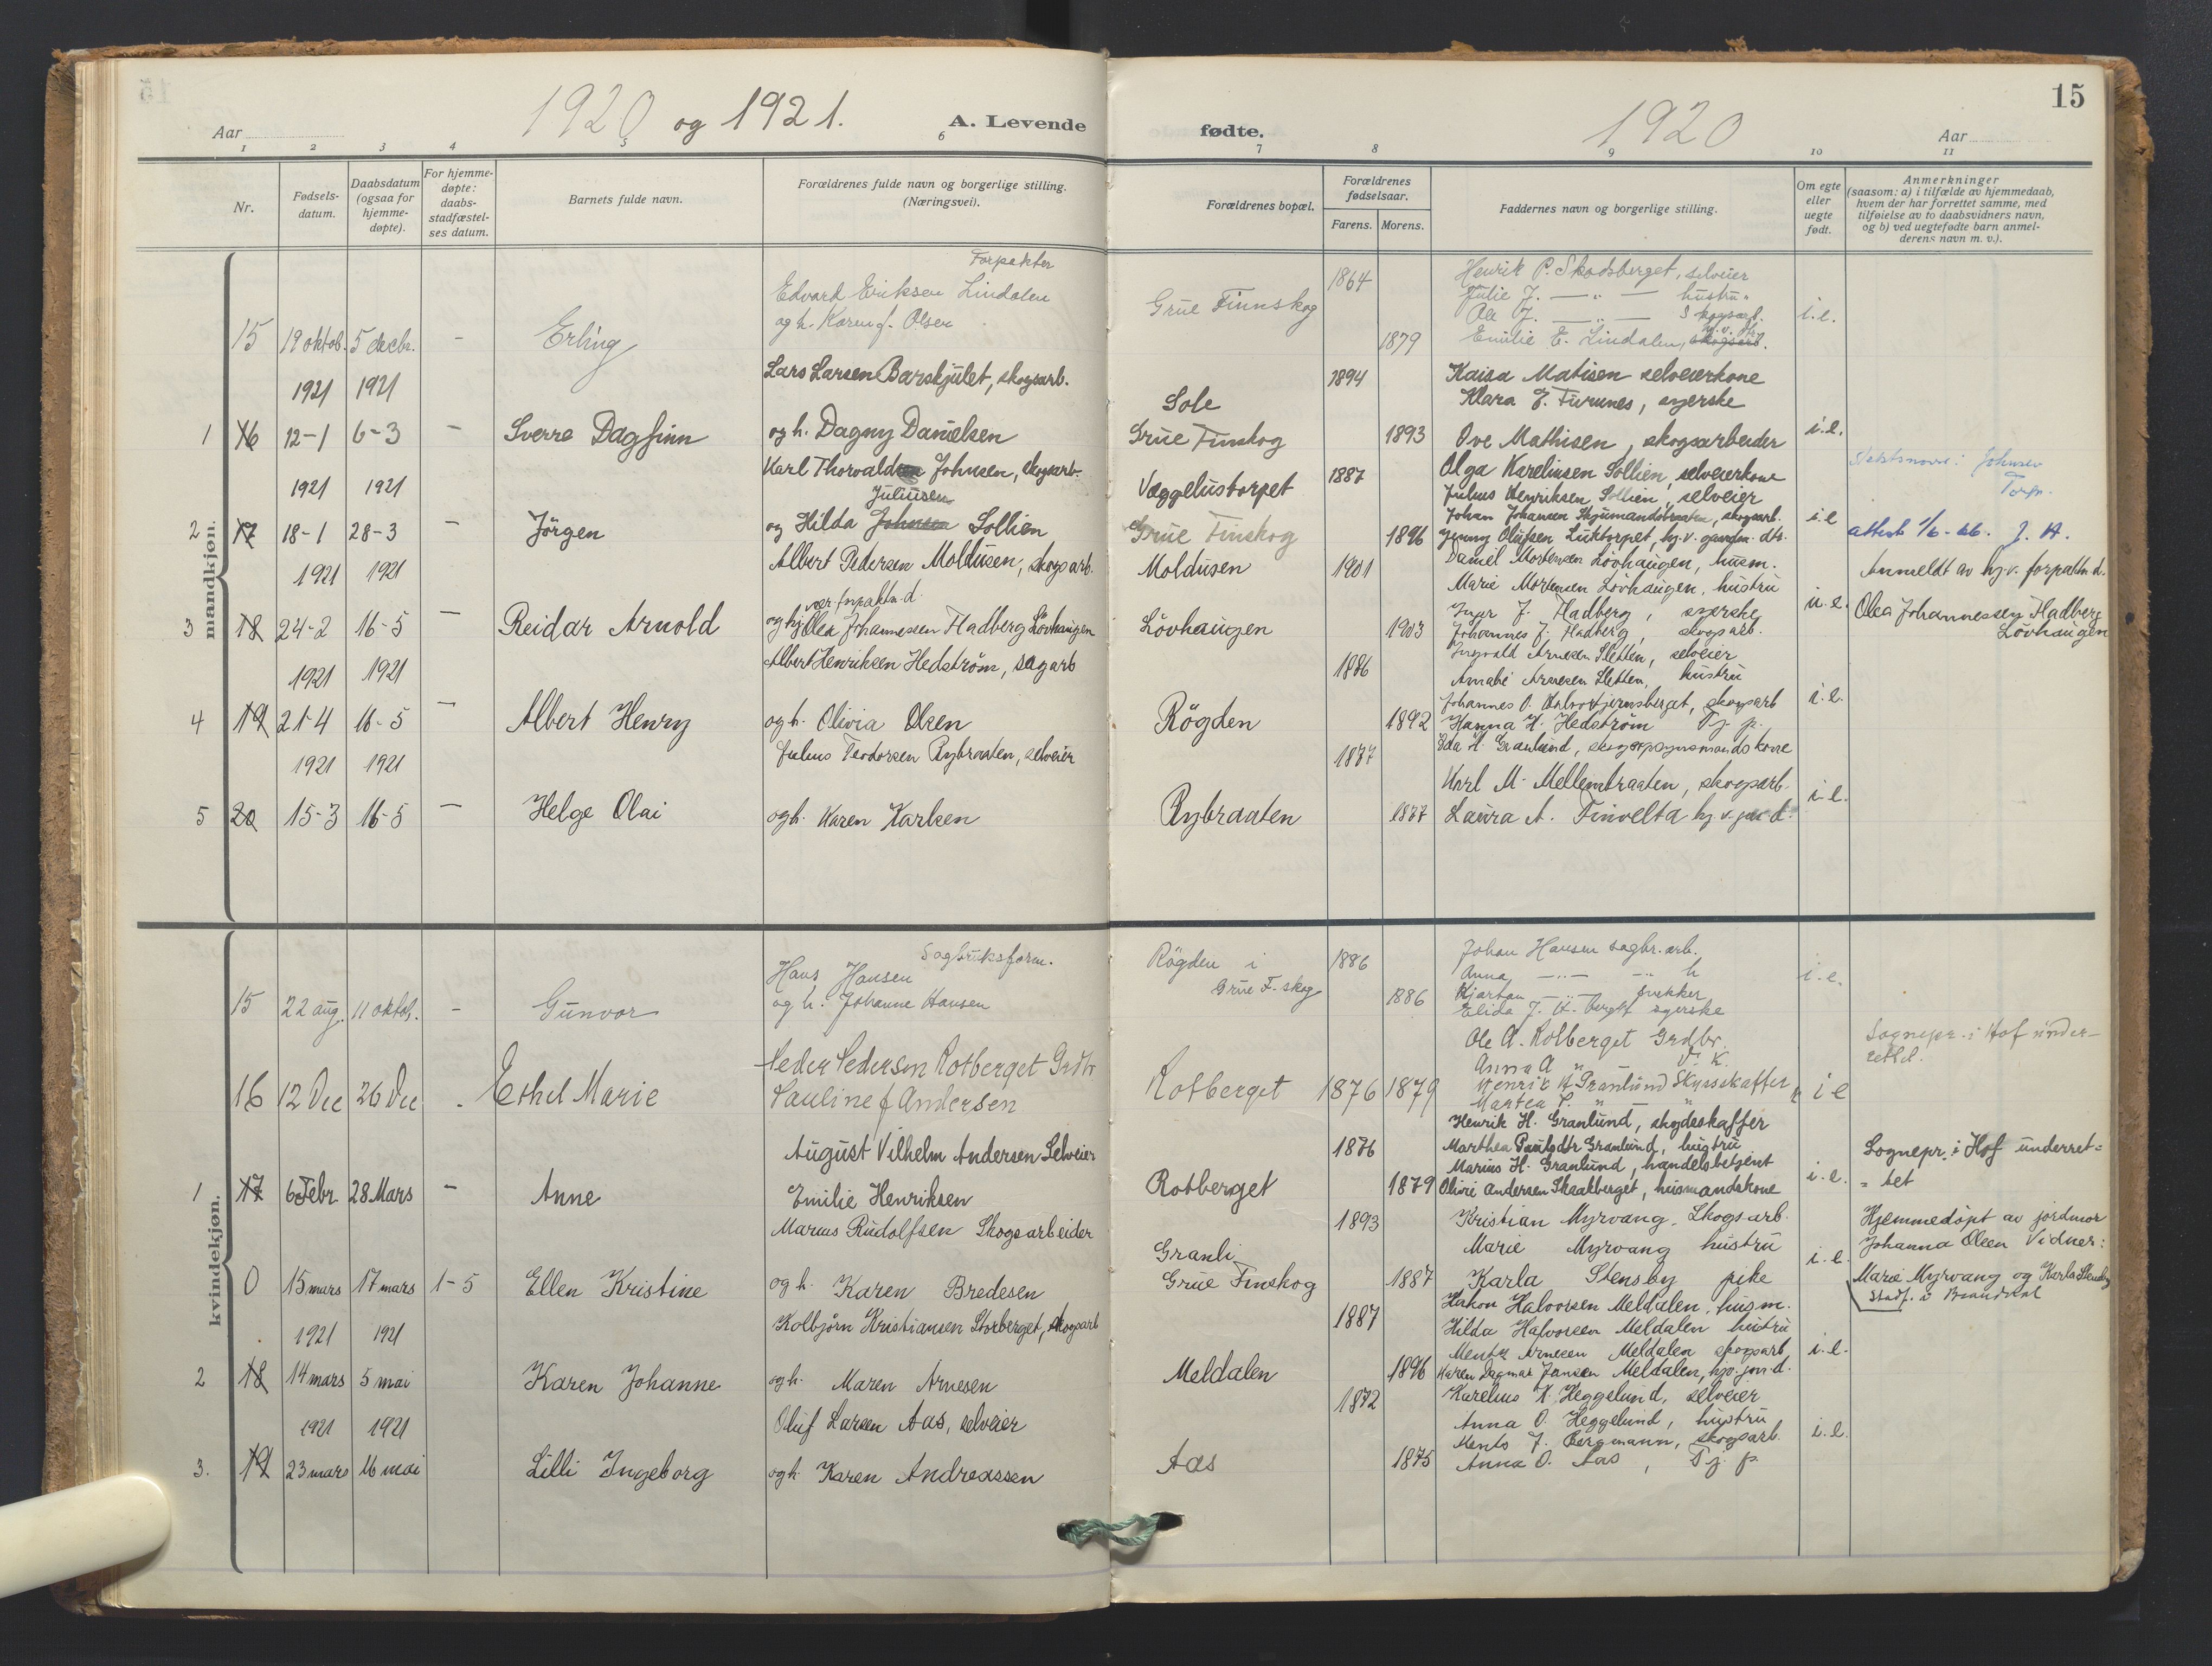 15
1920 og 1921.
A. Levende fødte.
1920
Aar
Aar
1 2 3 4 5 6 7 8 9 10 11
Nr.
Fødsels-
datum.
Daabsdatum
(ogsaa for
hjemme-
døpte).
For hjemme-
døpte:
daabs-
stadfæstel-
ses datum.
Barnets fulde navn.
Forældrenes fulde navn og borgerlige stilling.
(Næringsvei).
Forældrenes bopæl.
Forældrenes
fødselsaar.
Farens. Morens.
Faddernes navn og borgerlige stilling.
Om egte
eller
uegte
født.
Anmerkninger
(saasom: a) i tilfælde av hjemmedaab,
hvem der har forrettet samme, med
tilføielse av to daabsvidners navn,
og b) ved uegtefødte barn anmel-
derens navn m. v.).
mandkjøn.
Forpakter
15 19 oktob. 5 decbr. - Erling
Edvard Eriksen Lindalen
og h. Karen f. Olsen
Grue Finnskog
1864
1879
Henrik P. Skodsberget, selveier
Julie J. — " — hustru
Ole J. — " — Skogsarb.
Emilie E. Lindalen, skogsarb.
i.e.
1921 1921
1 16 12-1 6-3 - Sverre Dagfinn
Lars Larsen Barskjulet, skogsarb.
og h. Dagny Danielsen
Sole
Grue Finskog
1894
1893
Kaisa Matisen selveierkone
Klara E. Furunes, syerske
Ove Mathisen, skogsarbeider
i.e.
1921 1921
2 17 18-1 28-3 - Jörgen
Karl Thorvald Johnsen, skogsarb.
Juliusen
og Hilda Johnsen Sollien
Væggelustorpet
Grue Finskog
1887
1896
Olga Karelinsen Sollien, selveierkone
Julius Henriksen Sollien, selveier
Johan Johansen Skjumandsbraaten, skogsarb.
Jenny Olufsen Luktorpet, hj.v. gaardm. dtr.
i.e
Johnsen
Torp.
attest 1/6-66. J. H.
1921 1921
3 18 24-2 16-5 - Reidar Arnold
Albert Pedersen Moldusen, skogsarb.
vær. forpaktn. d.
og hj. Olea Johannessen Hadberg Lövhaugen
Moldusen
Lövhaugen
1901
1903
Daniel Mortensen Lövhaugen, husm.
Marie Mortensen Lövhaugen, hustru
Inger J. Hadberg, syerske
Johannes J. Hadberg, skogsarb.
u.e.
Anmeldt av hj.v. forpaktn d.
Olea Johannessen Hadberg
Lövhaugen
1921 1921
4 19 21-4 16-5 - Albert Henry
Albert Henriksen Hedström, sagarb
og h. Olivia Olsen
Rögden
1886
1892
Ingvald Arnesen Sletten, selveier
Amalie Arnesen Sletten, hustru
Johannes O. Kalvtjernsberget, skogsarb
Hanna H. Hedström Tj. p.
i.e.
1921 1921
5 20 15-3 16-5 - Helge Olai
Julius Teodorsen Rybraaten, selveier
og h. Karen Karlsen
Rybraaten
1877
1877
Eda H. Granlund, skogopsynsmandskone
Karl M. Mellembraaten, skogsarb.
Laura A. Finvelta hj.v. grd.
i.e.
kvindekjøn.
15 22 aug. 11 oktob. - Gunvor
Sagbruksform.
Hans Hansen
og h. Johanne Hansen
Rögden i
Grue F. skog
1886
1886
Johan Hansen sagbr. arb.
Anna — " — " h
Kjartan — " — snekker
Elida J. H. Berget syerske
i.e.
16 12 Dec 26 Dec - Ethel Marie
Peder Pedersen Rotberget Grdbr
Pauline f Andersen
Rotberget
1876 1879
Ole A. Rotberget Grdbr.
Anna A " d. K.
Henrik H Granlund Skysskaffer
Martea P. " — "
i e
Sognepr. i Hof under-
rettet.
1 17 6 Febr. 28 Mars - Anne
August Vilhelm Andersen Selveier
Emilie Henriksen
Rotberget
1876
1879
Henrik H. Granlund, skydeskaffer
Marthea Paulsdtr Granlund, hustru
Marius H. Granlund, handelsbetjent
Olivie Andersen Skaalberget, husmandskone
i.e.
Sognepr. i Hof underret=
= tet
0 15 mars 17 mars 1-5 Ellen Kristine
Marius Rudolfsen Skogsarbeider
og h. Karen Bredesen
Granli
Grue Finskog
1893
1887
Kristian Myrvang. Skogsarb.
Marie Myrvang hustru
Karla Stensby pike
i.e.
Hjemmedöpt av jordmor
Johanna Olsen Vidner:
Marie Myrvang og Karla Stensby
Stadf. i Brandval
1921 1921
2 18 14 mars 5 mai Karen Johanne
Kolbjörn Kristiansen Storberget, skogsarb
og h. Maren Arnesen
Meldalen
1887
1896
Håkon Halvorsen Meldalen, husm.
Hilda Halvorsen Meldalen hustru
Mentz Arnesen Meldalen skogsarb
Karen Dagmar Jansen Meldalen, hjv. jon. d.
i.e.
1921 1921
3. 19 23 mars 16 mai Lilli Ingeborg
Oluf Larsen Aas, selveier
og h. Karen Andreassen
Aas
1872
1875
Karelius K. Heggelund, selveier
Anna O. Heggelund, hustru
Ments J. Bergmann, skogsarb.
Anna O. Aas, Tj. p.
i.e.